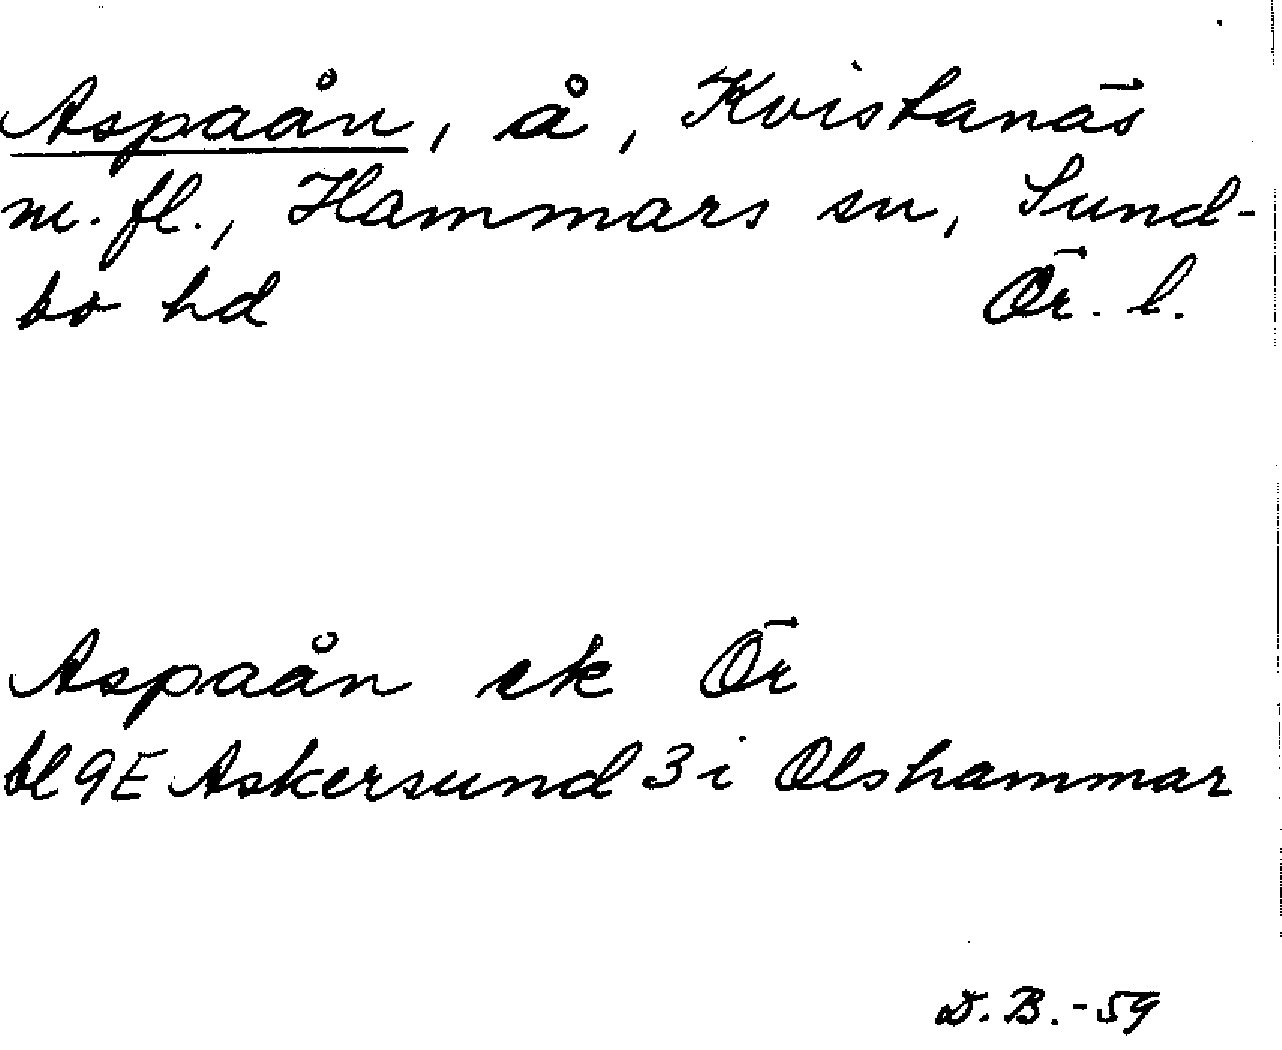 Aspaån, å, Kvistanäs
m. fl., Hammars sn, Sund-
bo hd Ör. l.
Aspaån ek Ör
bl 9E Askersund 3 i Olshammar
D. B. -59